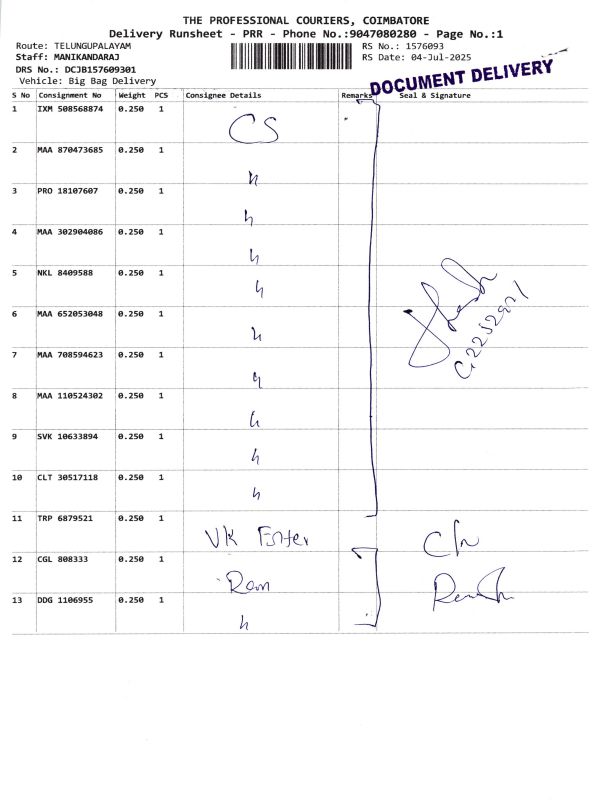 THE PROFESSIONAL COURIERS, COIMBATORE
Delivery Runsheet - PRR - Phone No.:9047080280 - Page No.:1
Route: TELUNGUPALAYAM RS No.: 1576093
Staff: MANIKANDARAJ RS Date: 04-Jul-2025
DRS No.: DCJB157609301
Vehicle: Big Bag Delivery
DOCUMENT DELIVERY
S No Consignment No Weight PCS Consignee Details Remarks Seal & Signature
1 IXM 508568874 0.250 1 CS
2 MAA 870473685 0.250 1 h
3 PRO 18107607 0.250 1 h
4 MAA 302904086 0.250 1 h
5 NKL 8409588 0.250 1 h
6 MAA 652053048 0.250 1 h
7 MAA 708594623 0.250 1 h
8 MAA 110524302 0.250 1 h
9 SVK 10633894 0.250 1 h
10 CLT 30517118 0.250 1 h
11 TRP 6879521 0.250 1 VK
12 CGL 808333 0.250 1 Ram
13 DDG 1106955 0.250 1 h